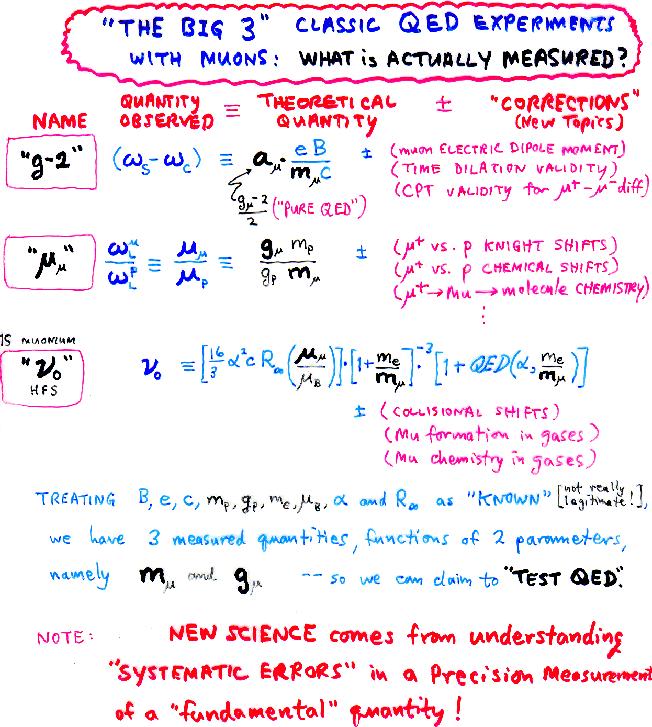 "THE BIG 3" CLASSIC QED EXPERIMENTS
WITH MUONS: WHAT is ACTUALLY MEASURED?
NAME QUANTITY OBSERVED ≡ THEORETICAL QUANTITY ± "CORRECTIONS" (New Topics)
"g-2" (ω_S-ω_C) ≡ a_μ · eB/m_μC ± (muon ELECTRIC DIPOLE MOMENT)
(TIME DILATION VALIDITY)
(CPT VALIDITY for μ⁺-μ⁻ diff)
g_μ-2/2 ("PURE QED")
"μ_μ" ω_L^μ/ω_L^p ≡ μ_μ/μ_p ≡ g_μ m_p/g_p m_μ ± (μ⁺ vs. p KNIGHT SHIFTS)
(μ⁺ vs. p CHEMICAL SHIFTS)
(μ⁺→Mu→molecule CHEMISTRY)
⋮
1S MUONIUM
"ν₀" HFS
ν₀ ≡ [16/3 α²c R_∞ (μ_μ/μ_B)]·[1+m_e/m_μ]·⁻³[1+QED(α, m_e/m_μ)]
± (COLLISIONAL SHIFTS)
(Mu formation in gases)
(Mu chemistry in gases)
TREATING B, e, c, m_p, g_p, m_e, μ_B, α and R_∞ as "KNOWN" [not really legitimate!],
we have 3 measured quantities, functions of 2 parameters,
namely m_μ and g_μ -- so we can claim to "TEST QED".
NOTE: NEW SCIENCE comes from understanding
"SYSTEMATIC ERRORS" in a Precision Measurement
of a "fundamental" quantity!